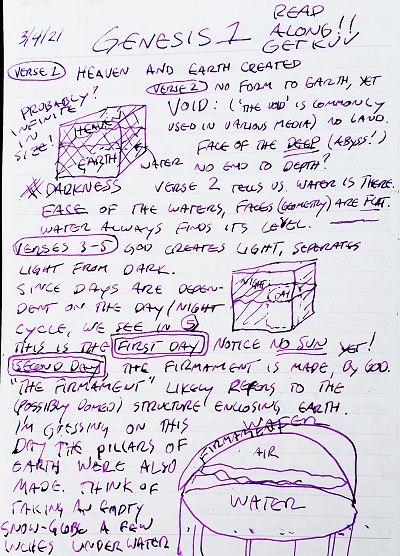 3/4/21 GENESIS 1 READ
ALONG!!
GET KJV
VERSE 1 HEAVEN AND EARTH CREATED
VERSE 2 NO FORM TO EARTH, YET
PROBABLY?
INFINITE
IN
SIZE!
HEAVEN
EARTH
VOID: ("THE VOID" IS COMMONLY
USED IN VARIOUS MEDIA) NO LAND.
FACE OF THE DEEP (ABYSS!)
WATER NO END TO DEPTH?
DARKNESS VERSE 2 TELLS US WATER IS THERE.
FACE OF THE WATERS, FACES (GEOMETRY) ARE FLAT.
WATER ALWAYS FINDS ITS LEVEL.
VERSES 3-5 GOD CREATES LIGHT, SEPERATES
LIGHT FROM DARK.
SINCE DAYS ARE DEPEN-
DENT ON THE DAY/NIGHT
CYCLE, WE SEE IN 5
NIGHT
DAY
THIS IS THE FIRST DAY NOTICE NO SUN YET!
SECOND DAY THE FIRMAMENT IS MADE, BY GOD.
"THE FIRMAMENT" LIKELY REFERS TO THE
(POSSIBLY DOMED) STRUCTURE ENCLOSING EARTH.
I'M GUESSING ON THIS
DAY THE PILLARS OF
EARTH WERE ALSO
MADE. THINK OF
TAKING AN EMPTY
SNOW-GLOBE A FEW
INCHES UNDERWATER
WATER
FIRMAMENT
AIR
WATER